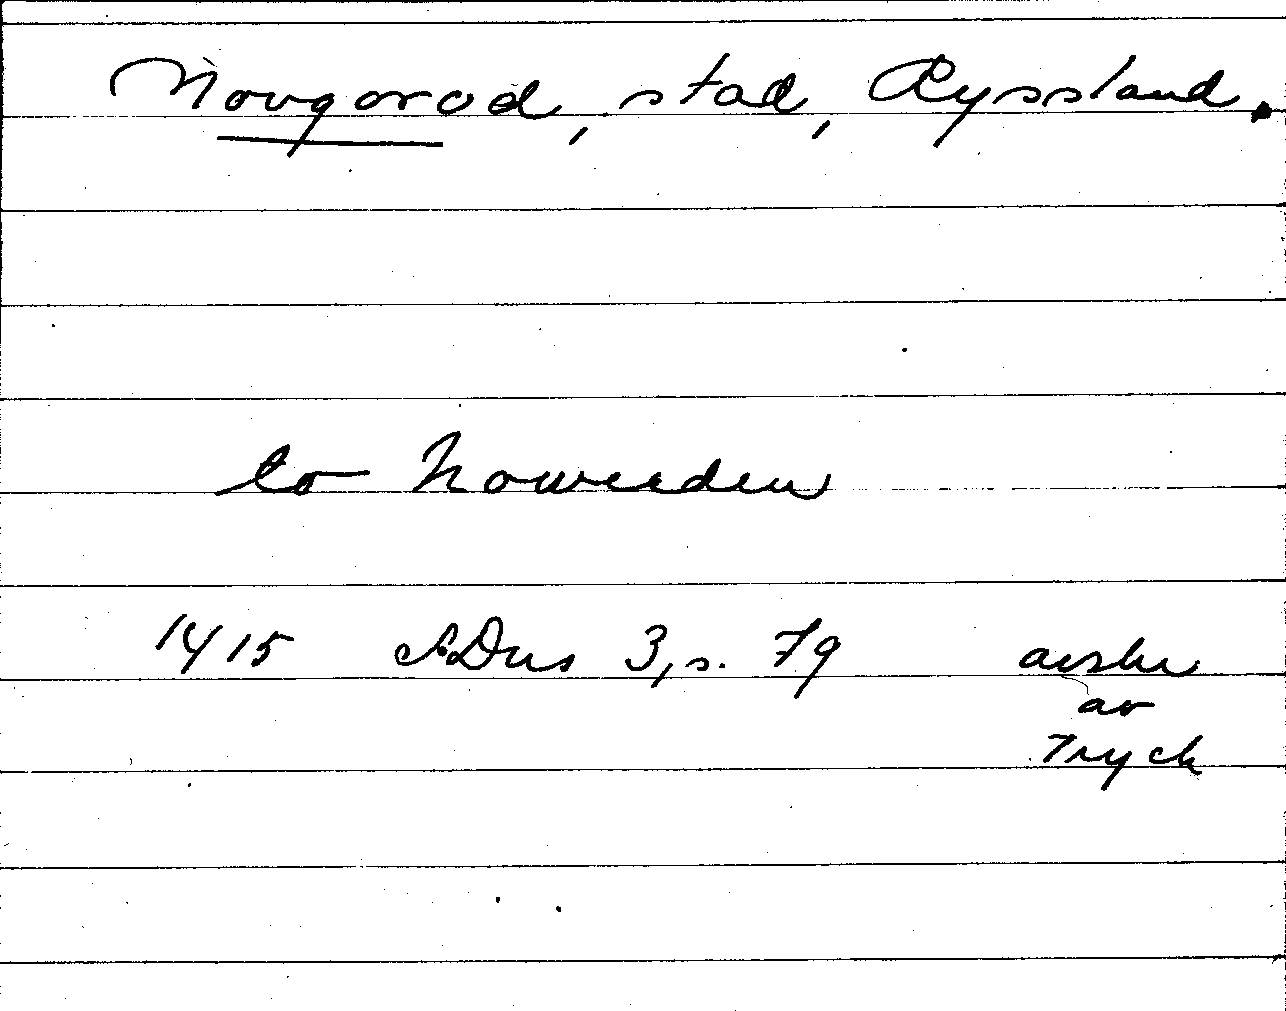 Novgorod, stad, Ryssland.
to Nowerden
1415 SDns 3, s. 79 avskr
av
Tryck